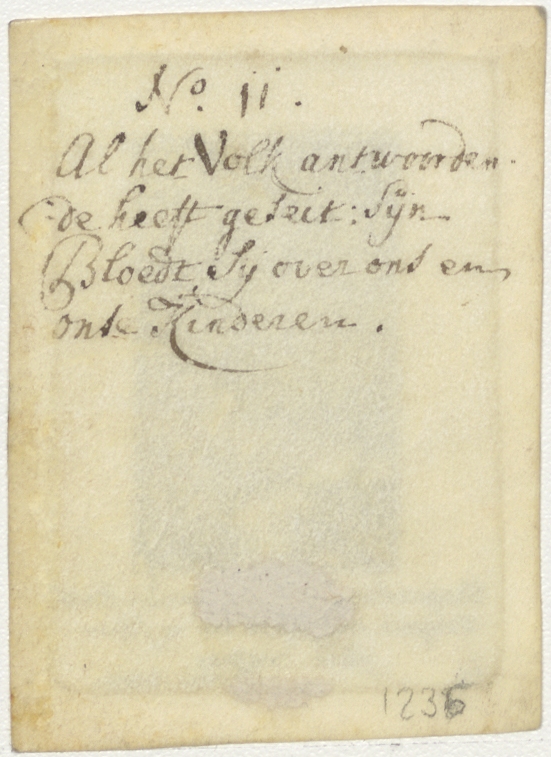 No. 11.
Al het Volk antwoorden-
de heeft geseit: Sÿn
Bloedt Sÿ over ons en
onse Kinderen.
1236